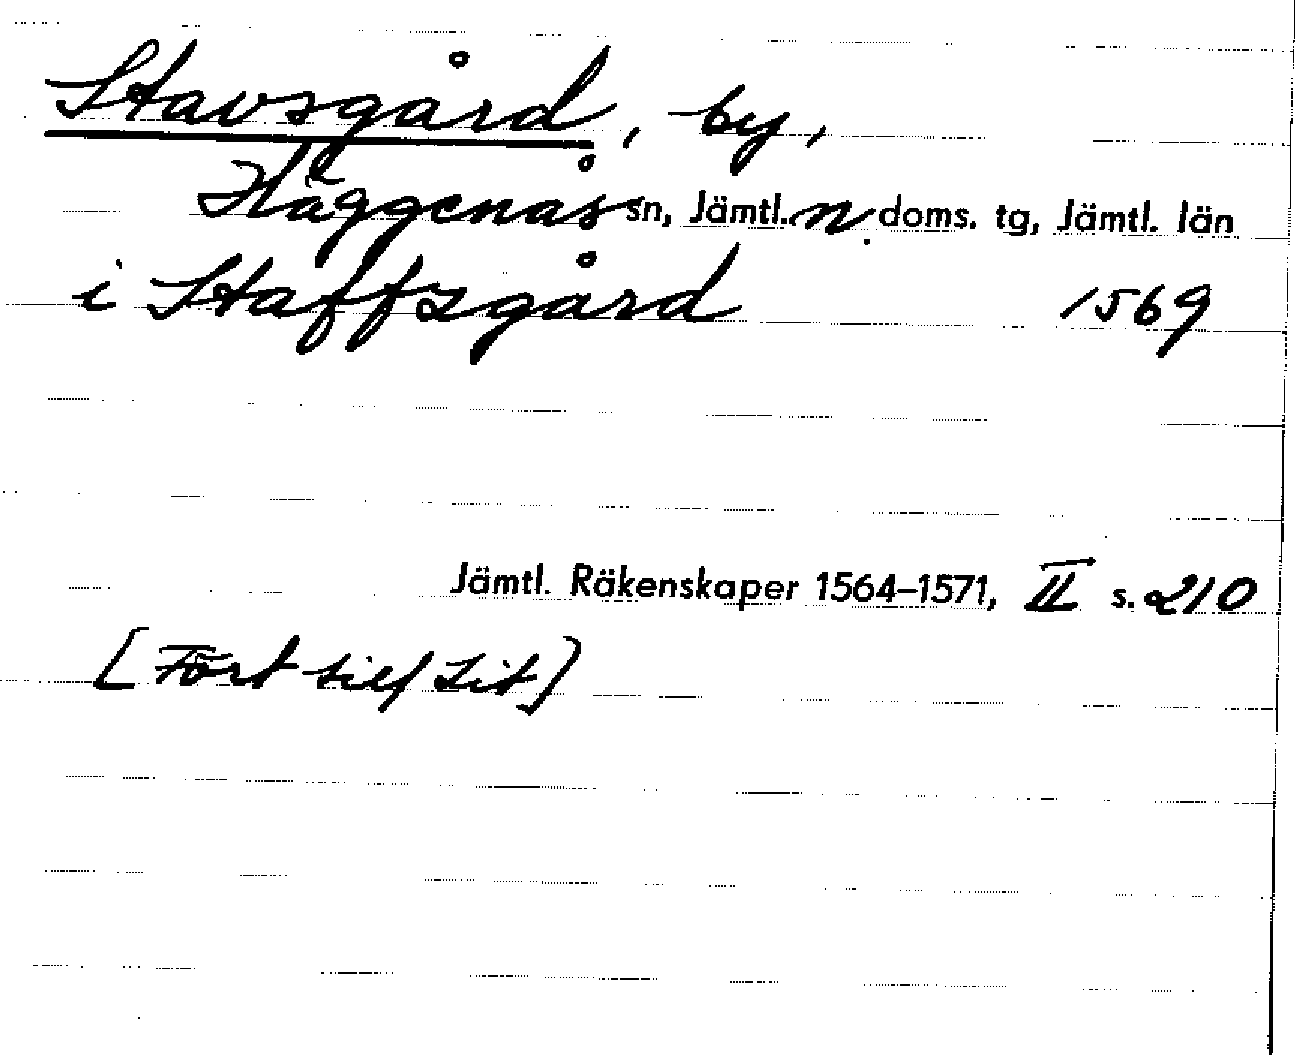 Stavsgård, by,
Häggenås sn, Jämtl. n. doms. tg, Jämtl. län
i Staffzgård 1569
Jämtl. Räkenskaper 1564–1571, II s. 210
[Fört till Lit]